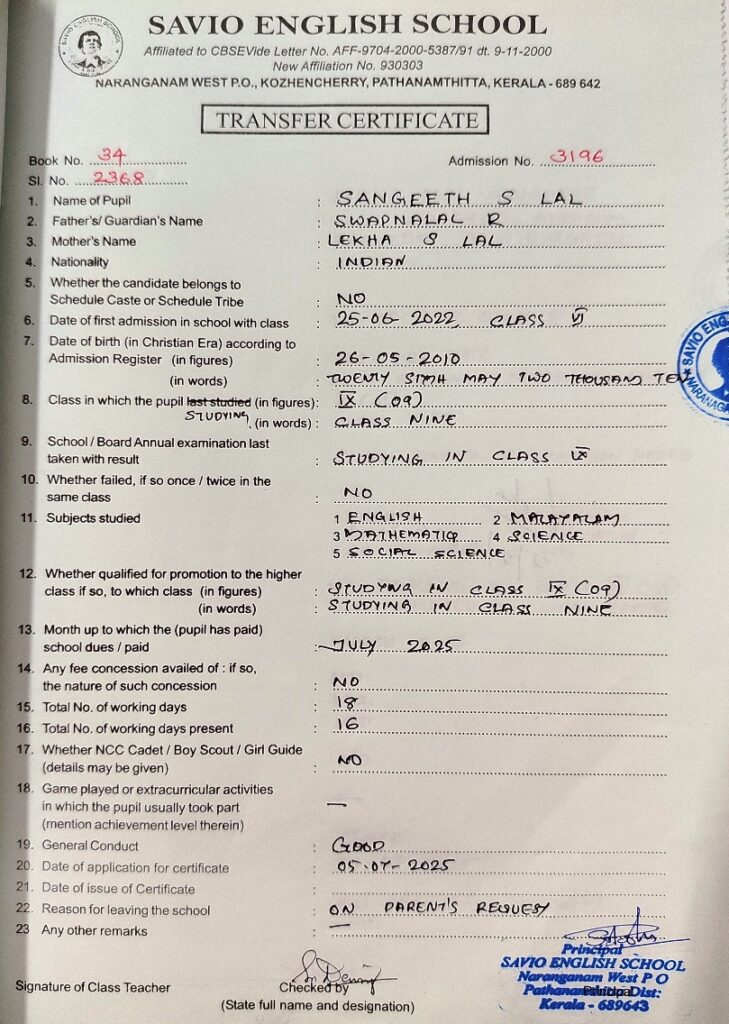 SAVIO ENGLISH SCHOOL
Affiliated to CBSEVide Letter No. AFF-9704-2000-5387/91 dt. 9-11-2000
New Affiliation No. 930303
NARANGANAM WEST P.O., KOZHENCHERRY, PATHANAMTHITTA, KERALA - 689 642
TRANSFER CERTIFICATE
Book No. 34 Admission No. 3196
Sl. No. 2368
1. Name of Pupil : SANGEETH S LAL
2. Father's/ Guardian's Name : SWAPNALAL R
3. Mother's Name : LEKHA S LAL
4. Nationality : INDIAN
5. Whether the candidate belongs to
Schedule Caste or Schedule Tribe : NO
6. Date of first admission in school with class : 25-06-2022, CLASS VI
7. Date of birth (in Christian Era) according to
Admission Register (in figures) : 26-05-2010
(in words) : TWENTY SIXH MAY TWO THOUSAND TEN
8. Class in which the pupil last studied (in figures): IX (09)
STUDYING (in words) : CLASS NINE
9. School / Board Annual examination last
taken with result : STUDYING IN CLASS IX
10. Whether failed, if so once / twice in the
same class : NO
11. Subjects studied 1 ENGLISH 2 MALAYALAM
3 MATHEMATIC 4 SCIENCE
5 SOCIAL SCIENCE
12. Whether qualified for promotion to the higher
class if so, to which class (in figures) : STUDYNG IN CLASS IX (09)
(in words) : STUDYING IN CLASS NINE
13. Month up to which the (pupil has paid)
school dues / paid : JULY 2025
14. Any fee concession availed of : if so,
the nature of such concession : NO
15. Total No. of working days : 18
16. Total No. of working days present : 16
17. Whether NCC Cadet / Boy Scout / Girl Guide
(details may be given) : NO
18. Game played or extracurricular activities
in which the pupil usually took part : —
(mention achievement level therein)
19. General Conduct : GOOD
20. Date of application for certificate : 05-07-2025
21. Date of issue of Certificate :
22. Reason for leaving the school : ON PARENT'S REQUEST
23 Any other remarks : —
Principal
SAVIO ENGLISH SCHOOL
Naranganam West P O
Pathanamthitta Dist:
Kerala - 689643
Principal
Signature of Class Teacher Checked by
(State full name and designation)